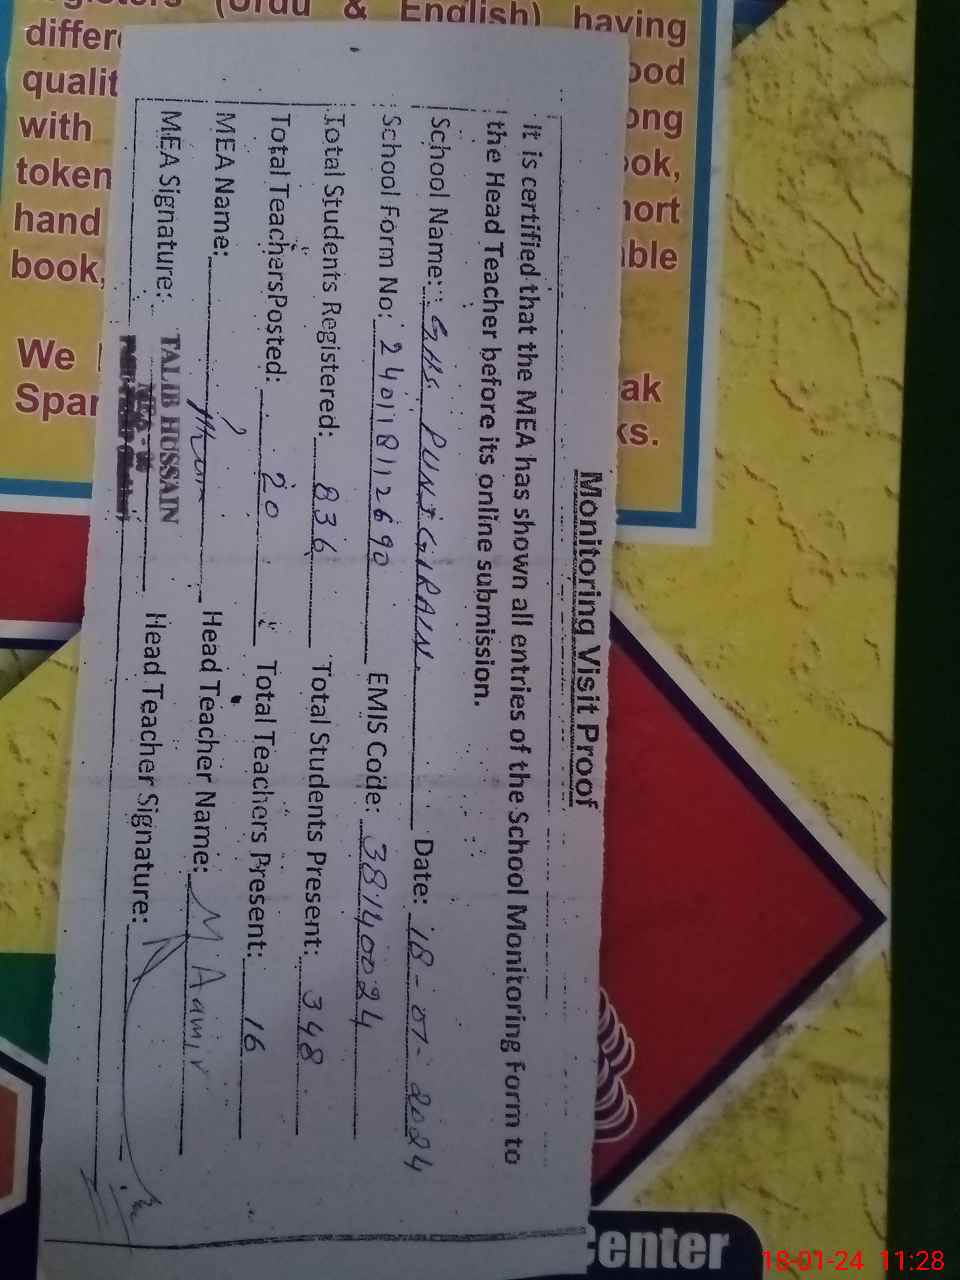 (Urdu & English) having
differ
ood
qualit
ong
with
ok,
token
hort
hand
able
book,
We
ak
Spar
ks.
Monitoring Visit Proof
It is certified that the MEA has shown all entries of the School Monitoring Form to
the Head Teacher before its online submission.
School Name: GHS PUNJGIRAIN Date: 18-01-2024
School Form No: 240118112690 EMIS Code: 38140024
Total Students Registered: 836 Total Students Present: 348
Total TeachersPosted: 20 Total Teachers Present: 16
MEA Name: Head Teacher Name: M Aamir
MEA Signature: TALIB HUSSAIN Head Teacher Signature:
MEA
Center
18-01-24 11:28